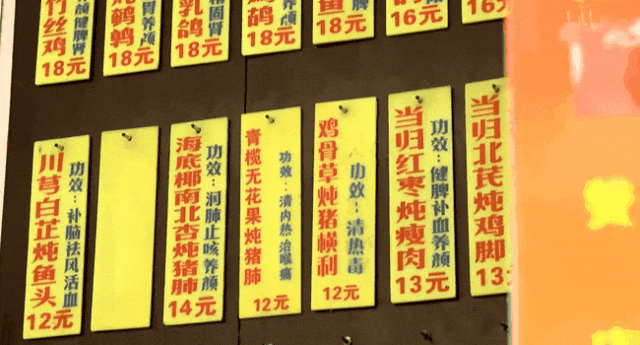 竹丝鸡
18元
鹌鹑
18元
乳鸽
18元
18元
鱼
18元
16元
16元
川芎白芷炖鱼头
功效：补脑祛风活血
12元
海底椰南北杏炖猪肺
功效：润肺止咳养颜
14元
青榄无花果炖猪肺
功效：清内热治喉痛
12元
鸡骨草炖猪横利
功效：清热毒
12元
当归红枣炖瘦肉
功效：健脾补血养颜
13元
当归北芪炖鸡脚
13